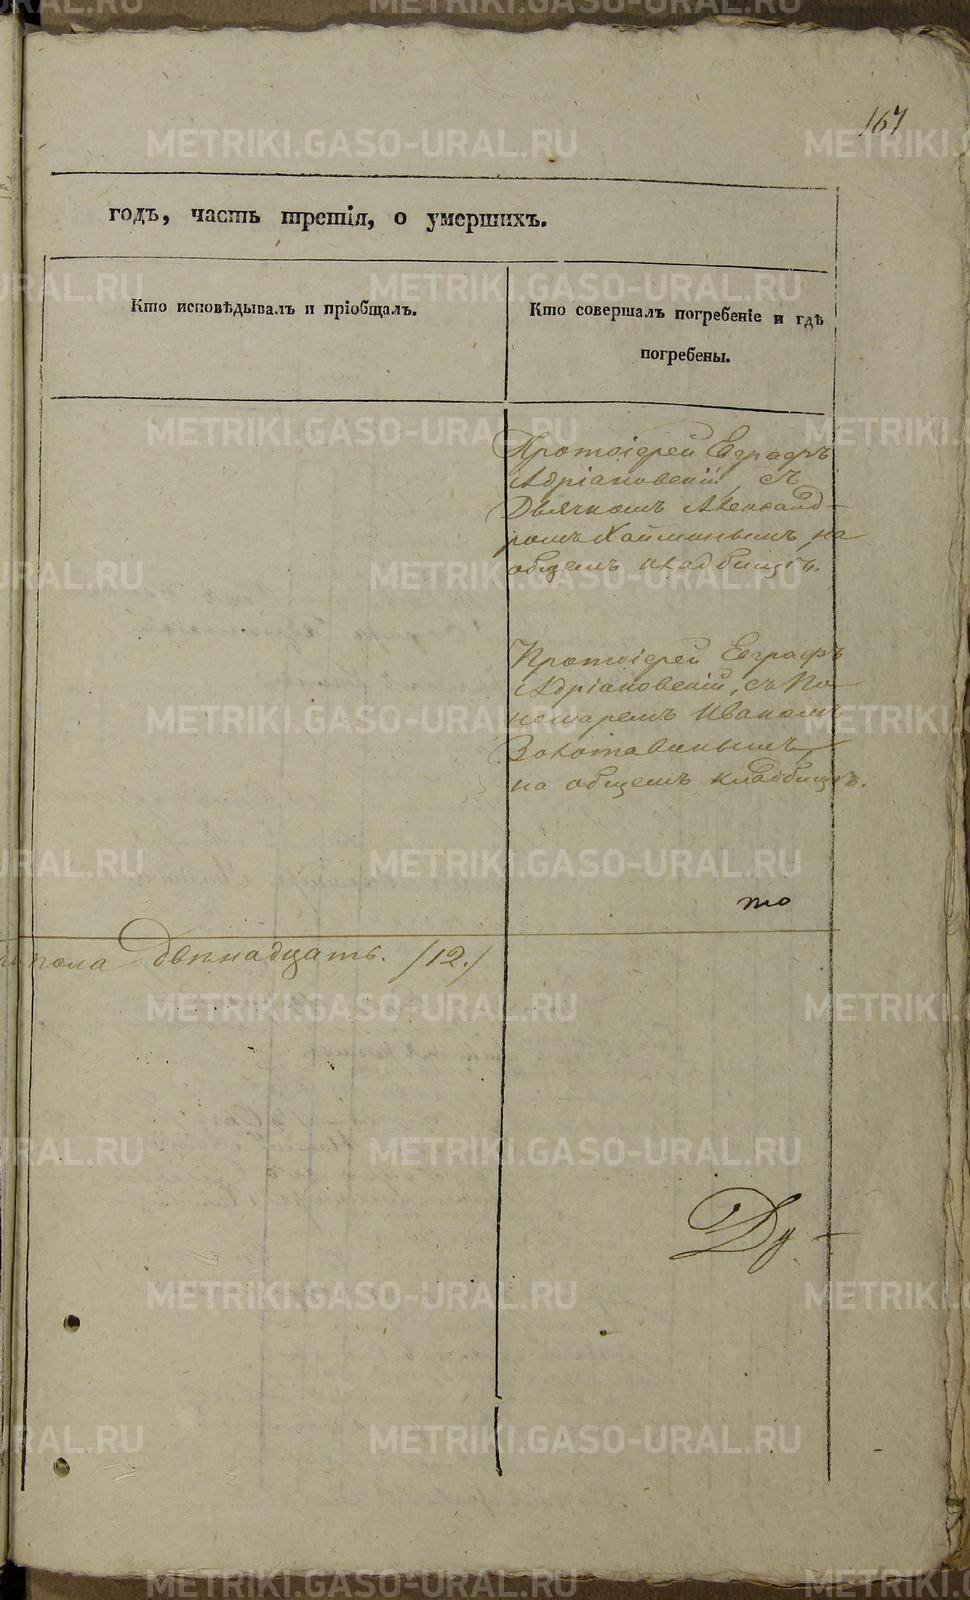 167
годъ, часть третія, о умершихъ.
Кто исповѣдывалъ и пріобщалъ.
Кто совершалъ погребеніе и гдѣ
погребены.
Протоіерей Евграфъ
Адріановскій, съ
Дьячкомъ Александ-
ромъ Хайминымъ, на
общемъ кладбищѣ.
Протоіерей Евграфъ
Адріановскій, съ По-
номаремъ Иваномъ
на общемъ кладбищѣ.
то
пола двѣнадцать. /12./
Ду-
METRIKI.GASO-URAL.RU